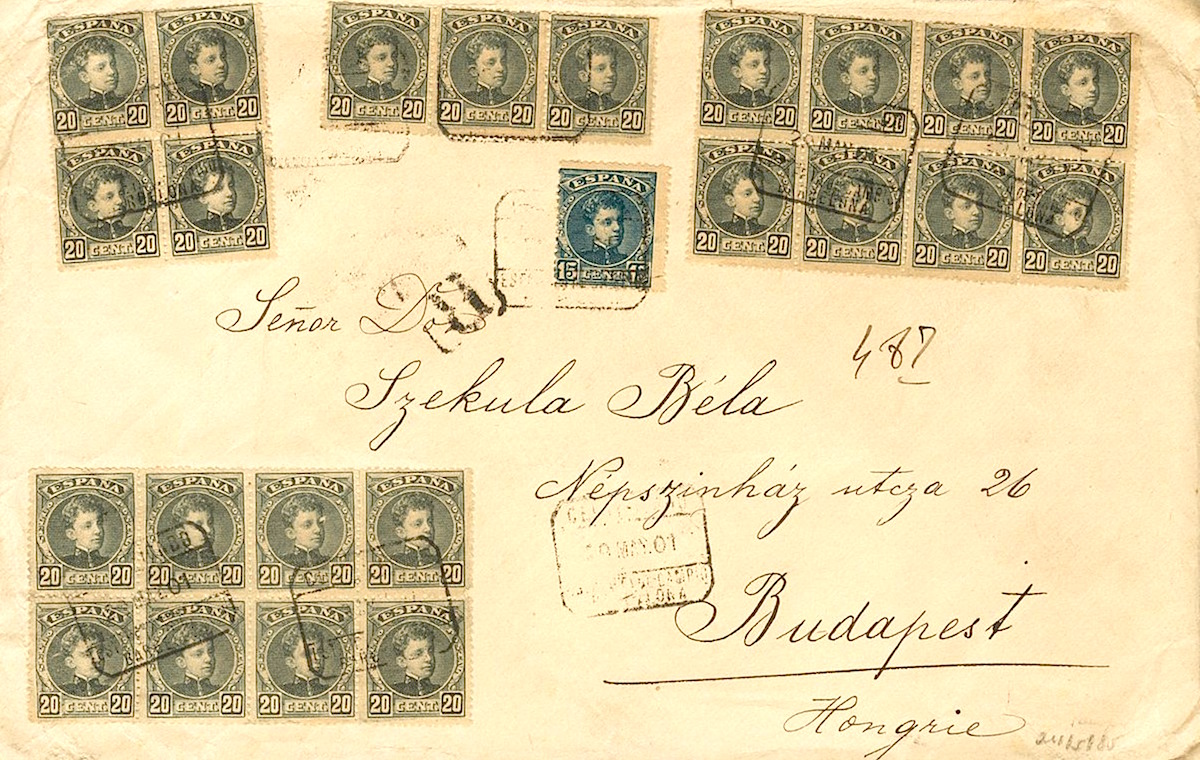 ESPAÑA ESPAÑA
20 CENT. 20 20 CENT. 20
ESPAÑA ESPAÑA
20 CENT. 20 20 CENT. 20
ESPAÑA ESPAÑA ESPAÑA
20 CENT. 20 20 CENT. 20 20 CENT. 20
ESPAÑA ESPAÑA ESPAÑA ESPAÑA
20 CENT. 20 20 CENT. 20 20 CENT. 20 20 CENT. 20
ESPAÑA ESPAÑA ESPAÑA ESPAÑA
20 CENT. 20 20 CENT. 20 20 CENT. 20 20 CENT. 20
ESPAÑA
15 CENT. 15
Señor Don
487
Szekula Béla
Népszinház utcza 26
MAY.01
Budapest
Hongrie
ESPAÑA ESPAÑA ESPAÑA ESPAÑA
20 CENT. 20 20 CENT. 20 20 CENT. 20 20 CENT. 20
ESPAÑA ESPAÑA ESPAÑA ESPAÑA
20 CENT. 20 20 CENT. 20 20 CENT. 20 20 CENT. 20